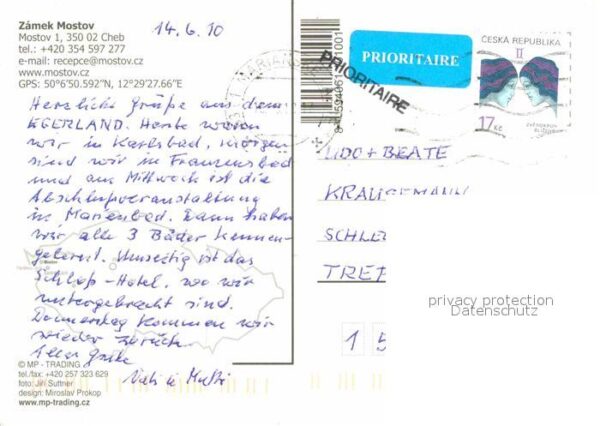 Zámek Mostov
Mostov 1, 350 02 Cheb
tel.: +420 354 597 277
e-mail: recepce@mostov.cz
www.mostov.cz
GPS: 50°6'50.592"N, 12°29'27.66"E
14.6.10
Herzliche Grüße aus dem
EGERLAND. Heute waren
wir in Karlsbad, morgen
sind wir in Franzensbad
und am Mittwoch ist die
Abschlußveranstaltung
in Marienbad. Dann haben
wir alle 3 Bäder kennen-
gelernt. Umseitig ist das
Schloß-Hotel, wo wir
untergebracht sind.
Donnerstag kommen wir
wieder zurück.
© MP - TRADING
tel./fax: +420 257 323 629
foto: Jiří Suttner
design: Miroslav Prokop
www.mp-trading.cz
PRIORITAIRE
PRIORITAIRE
ČESKÁ REPUBLIKA
II
17 Kč
UDO + BEATE
SCHLE
TRE
privacy protection
Datenschutz
1 5